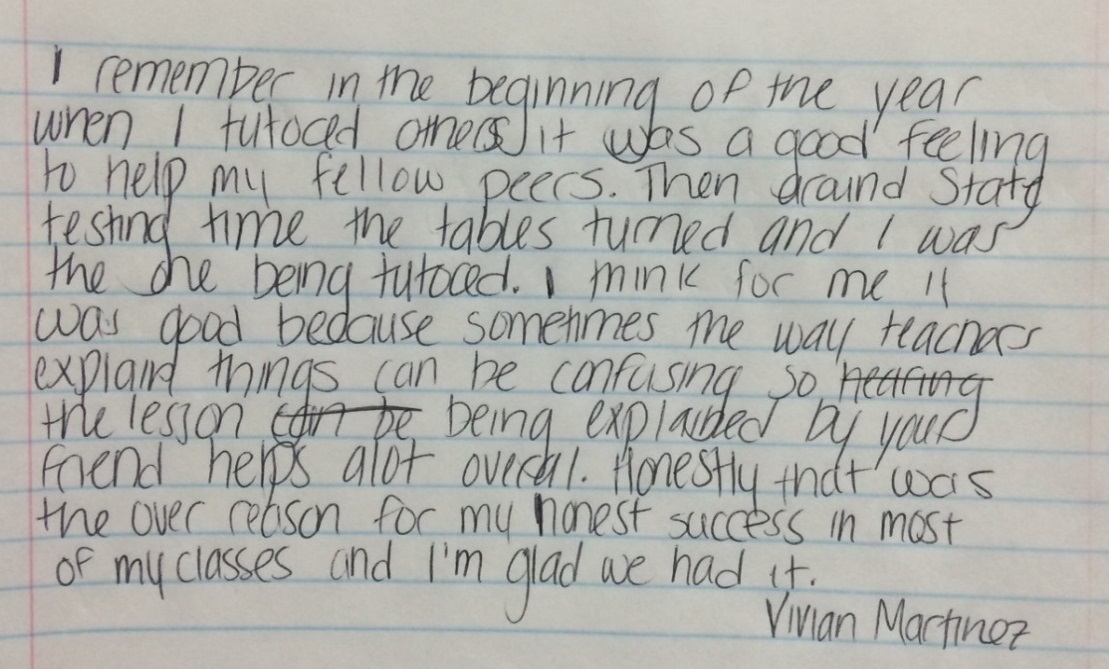 I remember in the beginning of the year
when I tutored others, it was a good feeling
to help my fellow peers. Then around State
testing time the tables turned and I was
the one being tutored. I think for me it
was good because sometimes the way teachers
explaind things can be confusing so hearing
the lesson can be being explained by your
friend helps alot overal. Honestly that was
the over reason for my honest success in most
of my classes and I'm glad we had it.
Vivian Martinez